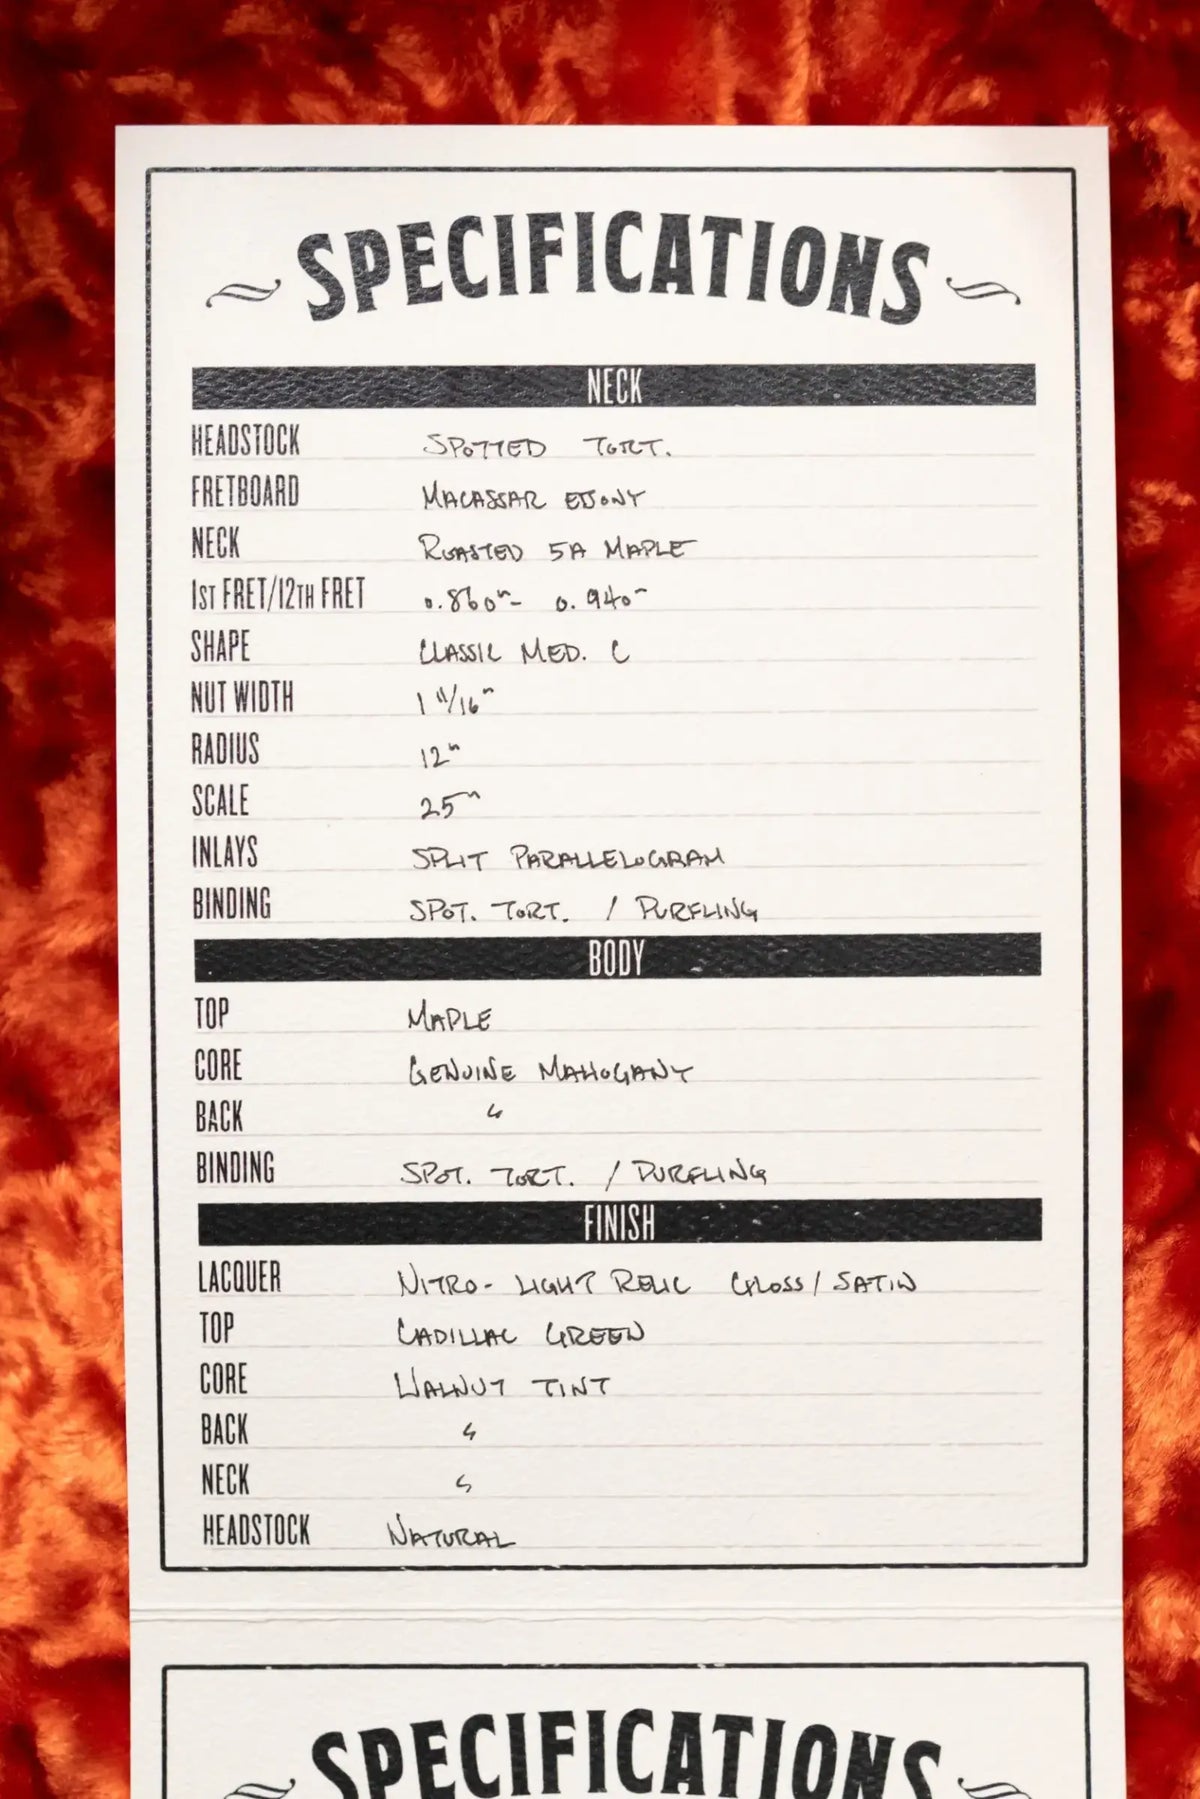 SPECIFICATIONS
NECK
HEADSTOCK SPOTTED TORT.
FRETBOARD MACASSAR EBONY
NECK ROASTED 5A MAPLE
1ST FRET/12TH FRET 0.860"- 0.940"
SHAPE CLASSIC MED. C
NUT WIDTH 1 11/16"
RADIUS 12"
SCALE 25"
INLAYS SPLIT PARALLELOGRAM
BINDING SPOT. TORT. / PURFLING
BODY
TOP MAPLE
CORE GENUINE MAHOGANY
BACK "
BINDING SPOT. TORT. / PURFLING
FINISH
LACQUER NITRO- LIGHT RELIC GLOSS/SATIN
TOP CADILLAC GREEN
CORE WALNUT TINT
BACK "
NECK "
HEADSTOCK NATURAL
SPECIFICATIONS